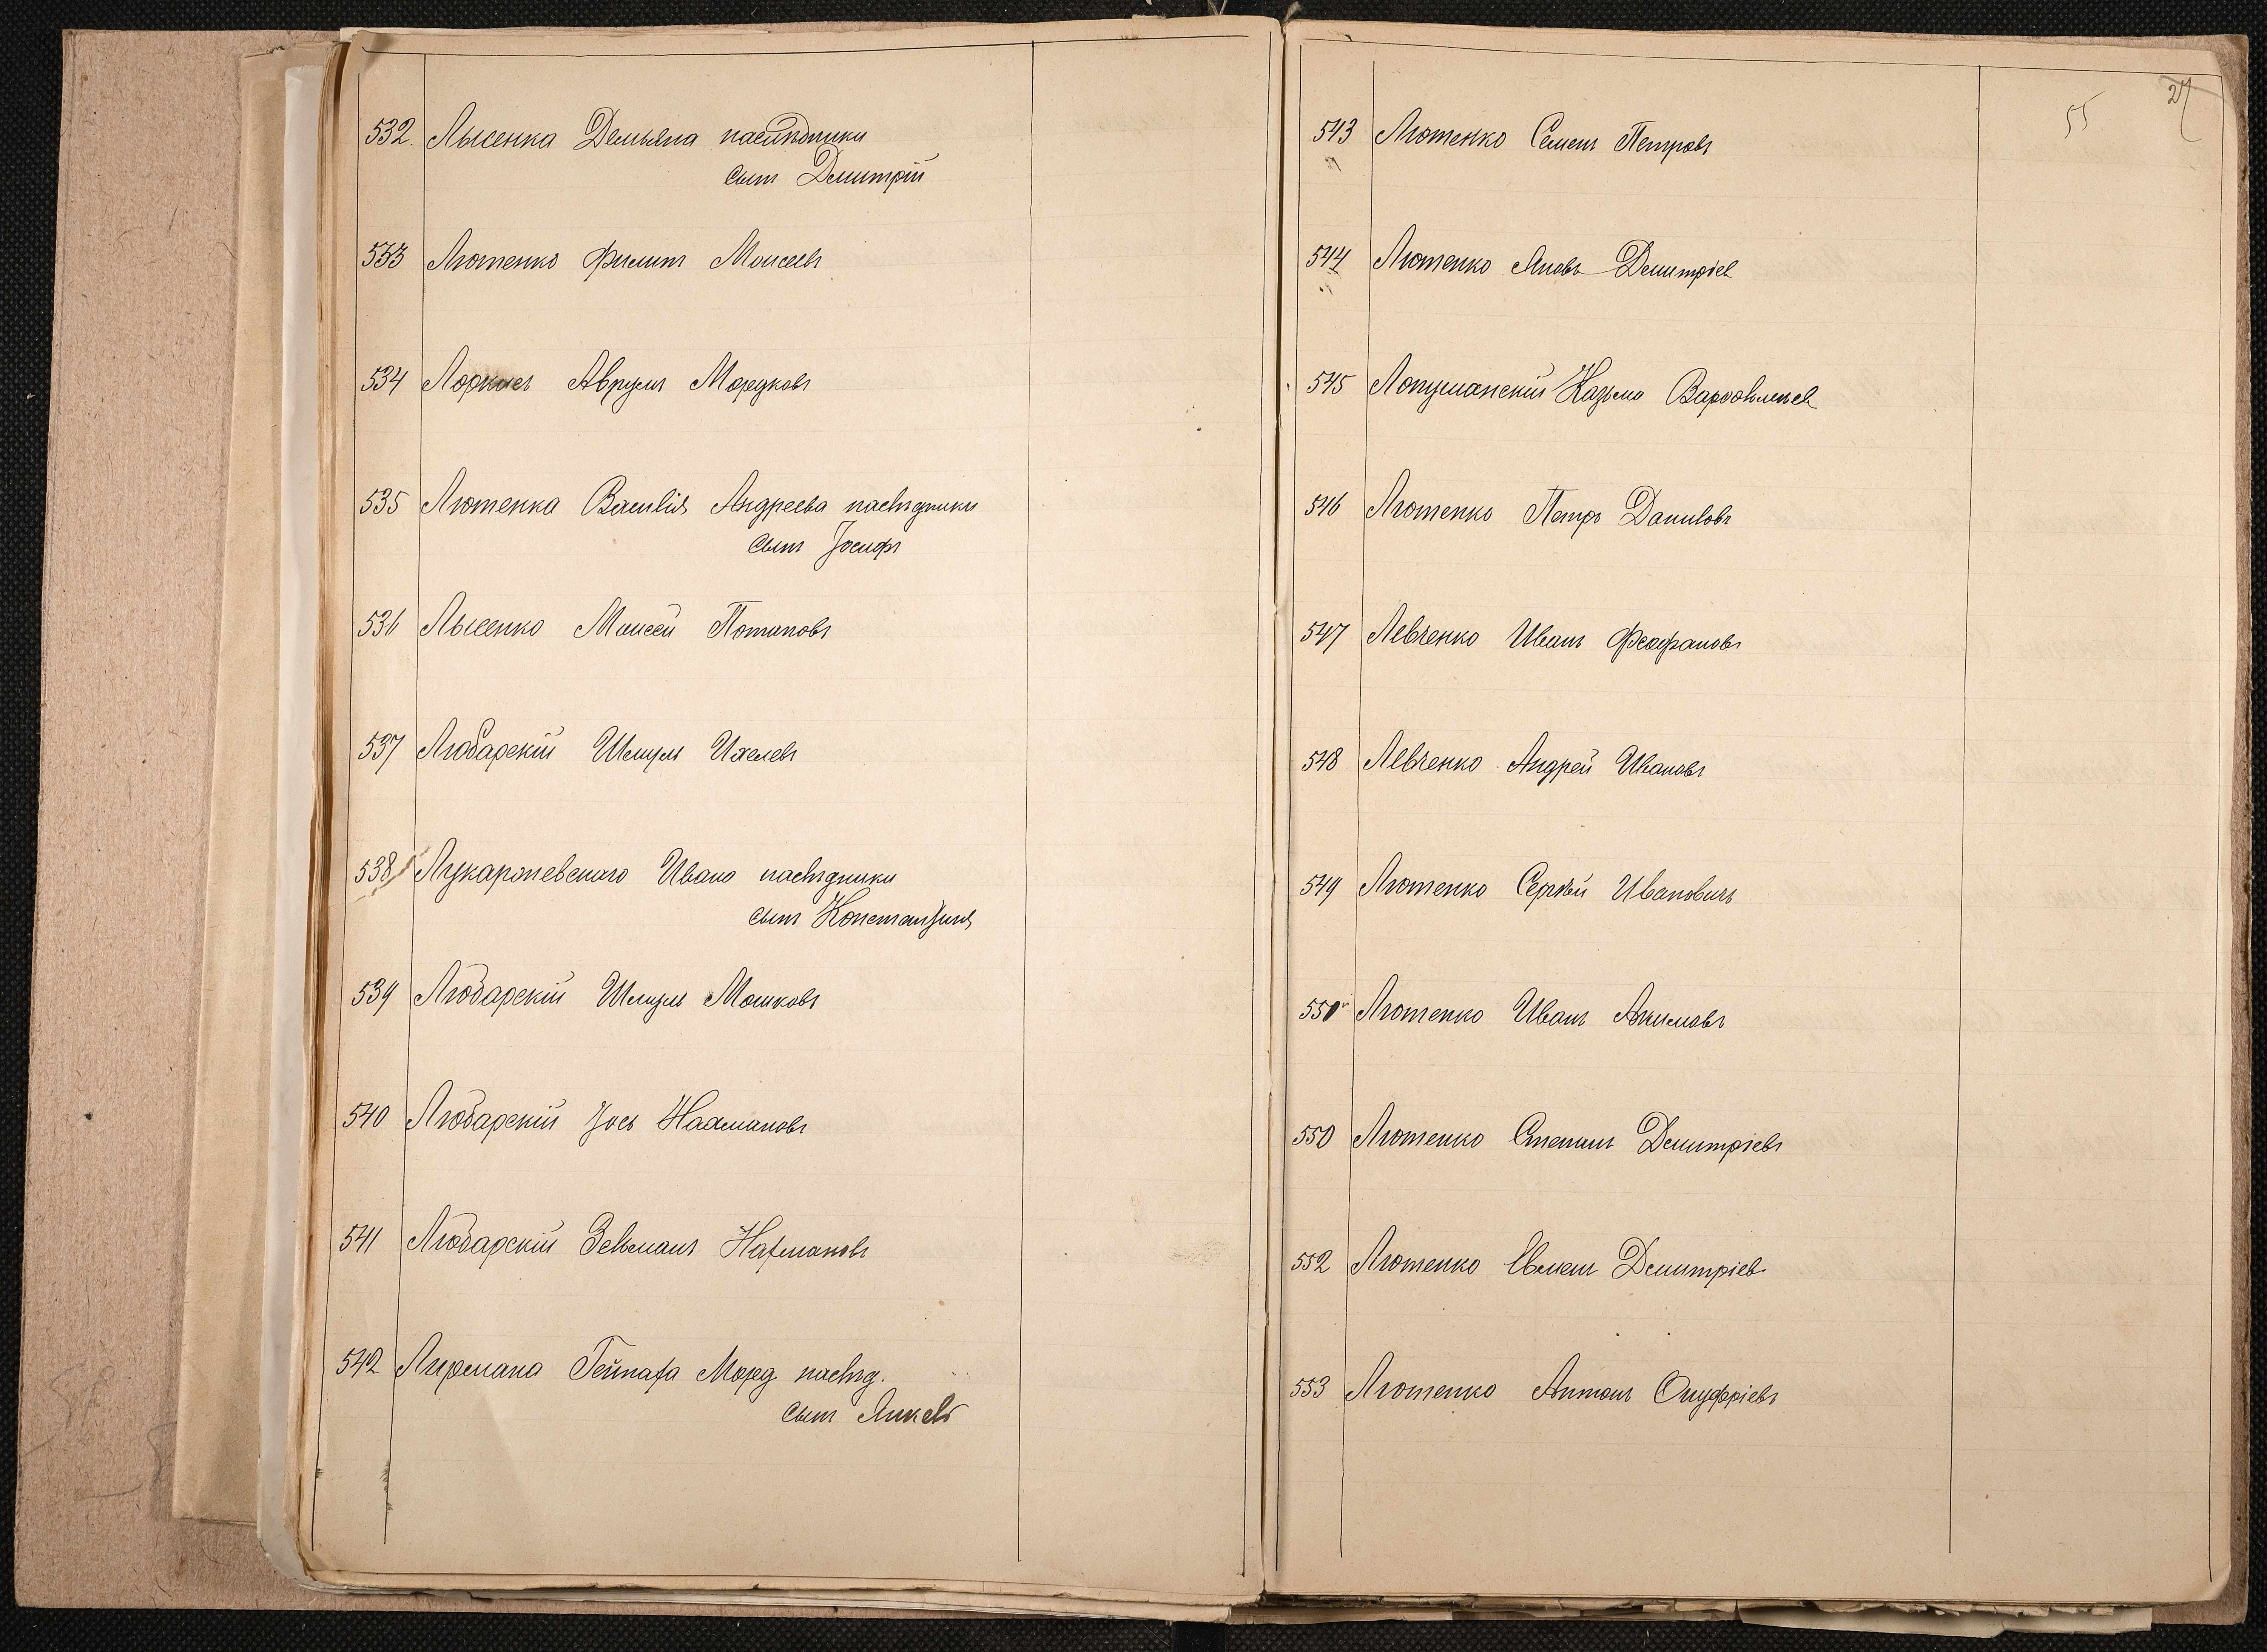 532. Лысенка Демьяна наслѣдники
сынъ Дмитрій
533 Лютенко Филипъ Моисеевъ
534 Лоркисъ Аврумъ Мордковъ
535 Лютенка Василія Андреева наслѣдники
сынъ Іосифъ
536 Лысенко Моисей Потаповъ
537 Любарскій Шмуль Ихелевъ
538 Лукаршевскаго Ивана наслѣдники
сынъ Константинъ
539 Любарскій Шмуль Мошковъ
540 Любарскій Іось Нахмановъ
541 Любарскій Зельманъ Нахмановъ
542 Лирмана Морд. наслѣд.
сынъ Янкель
27
55
543 Лютенко Семенъ Петровъ
544 Лютенко Яковъ Дмитріев
545 Лопушанскій Казьма
546 Лютенко Петръ Даниловъ
547 Левченко Иванъ Феофановъ
548 Левченко Андрей Ивановъ
549 Лютенко Сергѣй Ивановичъ
550 Лютенко Иванъ Акимовъ
550 Лютенко Степанъ Дмитріевъ
552 Лютенко Дмитріев
553 Лютенко Антонъ Онуфріевъ